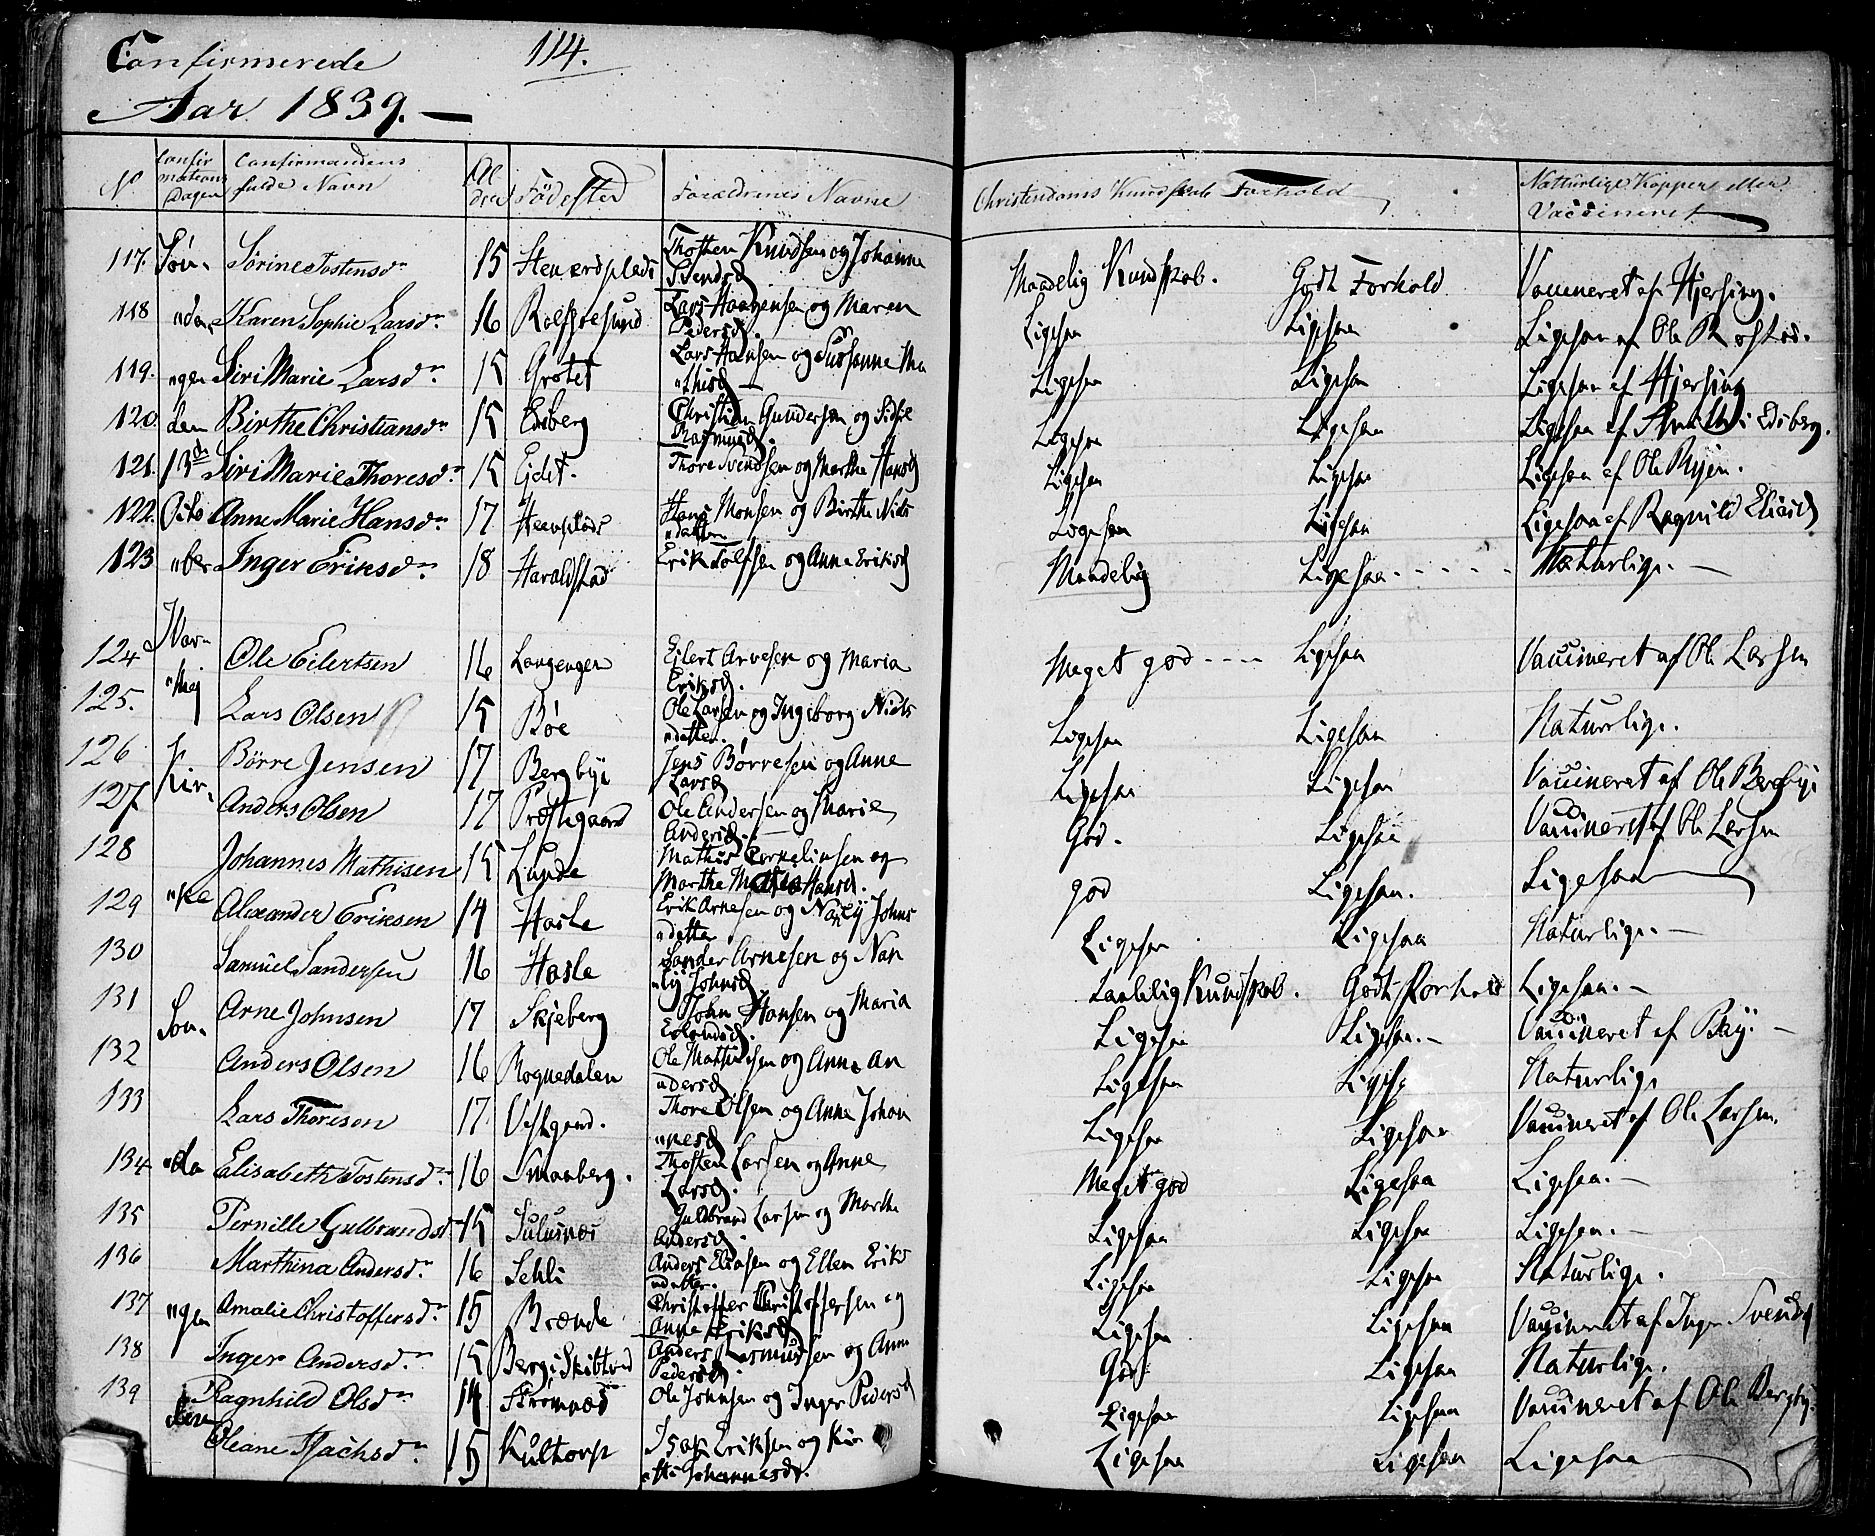 Confirmerede 114.
Aar 1839.
No Confirmations Dagen Confirmandens fulde Navn Alder Födested Forældrenes Navne Christendoms Kundskab Forhold Naturlige Kopper eller Vaccineret
117. Sön- Sörine Tostensdr 15 Thosten Knudsen og Johanne Svendsd Maadelig Kundskab. Godt Forhold Vaccineret af Hjersing.
118 "da Karen Sophie Larsdr 16 Rolfsøesund Lars Haagensen og Maren Pedersd. Ligesaa Ligesaa Ligesaa af Ole
119. "gen Siri Marie Larsdr 15 Grotet Lars Hansen og Susanne Ma"thisd Ligesaa Ligesaa Ligesaa af Hjersing
120. den Birthe Christiansdr 15 Edsberg Christian Gundersen og Sidse Rasmusd. Ligesaa Ligesaa Ligesaa af i Edsberg.
121. 13de Siri Marie Thoresdr 15 Ejdet. Thore Svendsen og Marthe Hansd Ligesaa Ligesaa Ligesaa af Ole
122. Octo Anne Marie Hansdr 17 Hans Monsen og Birthe Niels"datter Ligesaa Ligesaa Ligesaa af Ragnild
123 "ber Inger Eriksdr 18 Haraldstad Erik Tolfsen og Anne Eriksd Maadelig Ligesaa Naturlige.
124 Ole Eilertsen 16 Langengen Eilert Arvesen og Maria Eriksd. Meget god Ligesaa Vaccineret af Ole Larsen
125. Lars Olsen 15 Bøe Ole Larsen og Ingeborg Niels"datter. Ligesaa Ligesaa Naturlige.
126 Kir- Börre Jensen 17 Bergbye Jens Börresen og Anne Larsd Ligesaa Ligesaa Vaccineret af Ole Bergbye
127. Anders Olsen 17 Præstegaard Ole Andersen og Marie Andersd. God. Ligesaa Vaccineret af Ole Larsen
128 Johannes Mathisen 15 Lunde Mathis Corneliusen og Marthe Hansd. god Ligesaa. Ligesaa
129 "ke Alexander Eriksen 14 Hasle Erik Arnesen og Nancy Johns"datter Ligesaa Ligesaa Naturlige.
130 Samuel Sandersen 16 Hasle Sander Arnesen og Nan"cy Johnsd Taalelig Kundskab. Godt Forhold Ligesaa.
131 Sön- Arne Johnsen 17 Skjeberg John Hansen og Maria Ligesaa Ligesaa. Vaccineret af Bay.
132 Anders Olsen 16 Rognedalen Ole Mathisen og Anne An"dersd Ligesaa Ligesaa Naturlige
133 Lars Thoresen 17. Vestgaard. Thore Olsen og Anne Johan"nesd Ligesaa Ligesaa Vaccineret af Ole Larsen.
134 "da Elisabeth Tostensdr 16 Smaaberg. Thosten Larsen og Anne Larsd. Meget god Ligesaa Ligesaa.
135 Pernille Gulbrandsd 15 Gulbrand Larsen og Marthe Andersd. Ligesaa Ligesaa Ligesaa.
136 Marthina Andersdr 16 Sehli Anders Eliasen og Ellen Eriks"datter. Ligesaa Ligesaa Naturlige.
137 "gen Amalie Christoffersdr 15 Brænde Christoffer Christoffersen og Anne Eriksd Ligesaa Ligesaa Vaccineret af Inger Svendsd
138 Inger Andersdr 15 Berg i Skibtved Anders Rasmussen og Anne Pedersd God. Ligesaa Naturlige.
139 Ragnhild Olsdr 14 Strømnæs Ole Johnsen og Inger Pedersd Ligesaa Ligesaa Vaccineret af Ole Bergbye.
Oleane Isachsdr 15 Kultorp Isak Eriksen og Kir"sti Johannesdr. Ligesaa Ligesaa Ligesaa